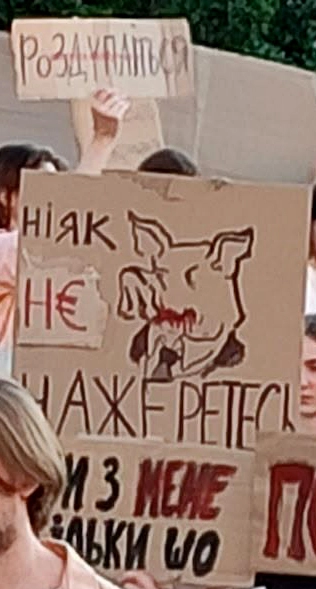 РОЗДУПЛІТЬСЯ
НІЯК
НЄ
НАЖЕРЕТЕСЬ
И З МЕНЕ
ІЛЬКИ ШО